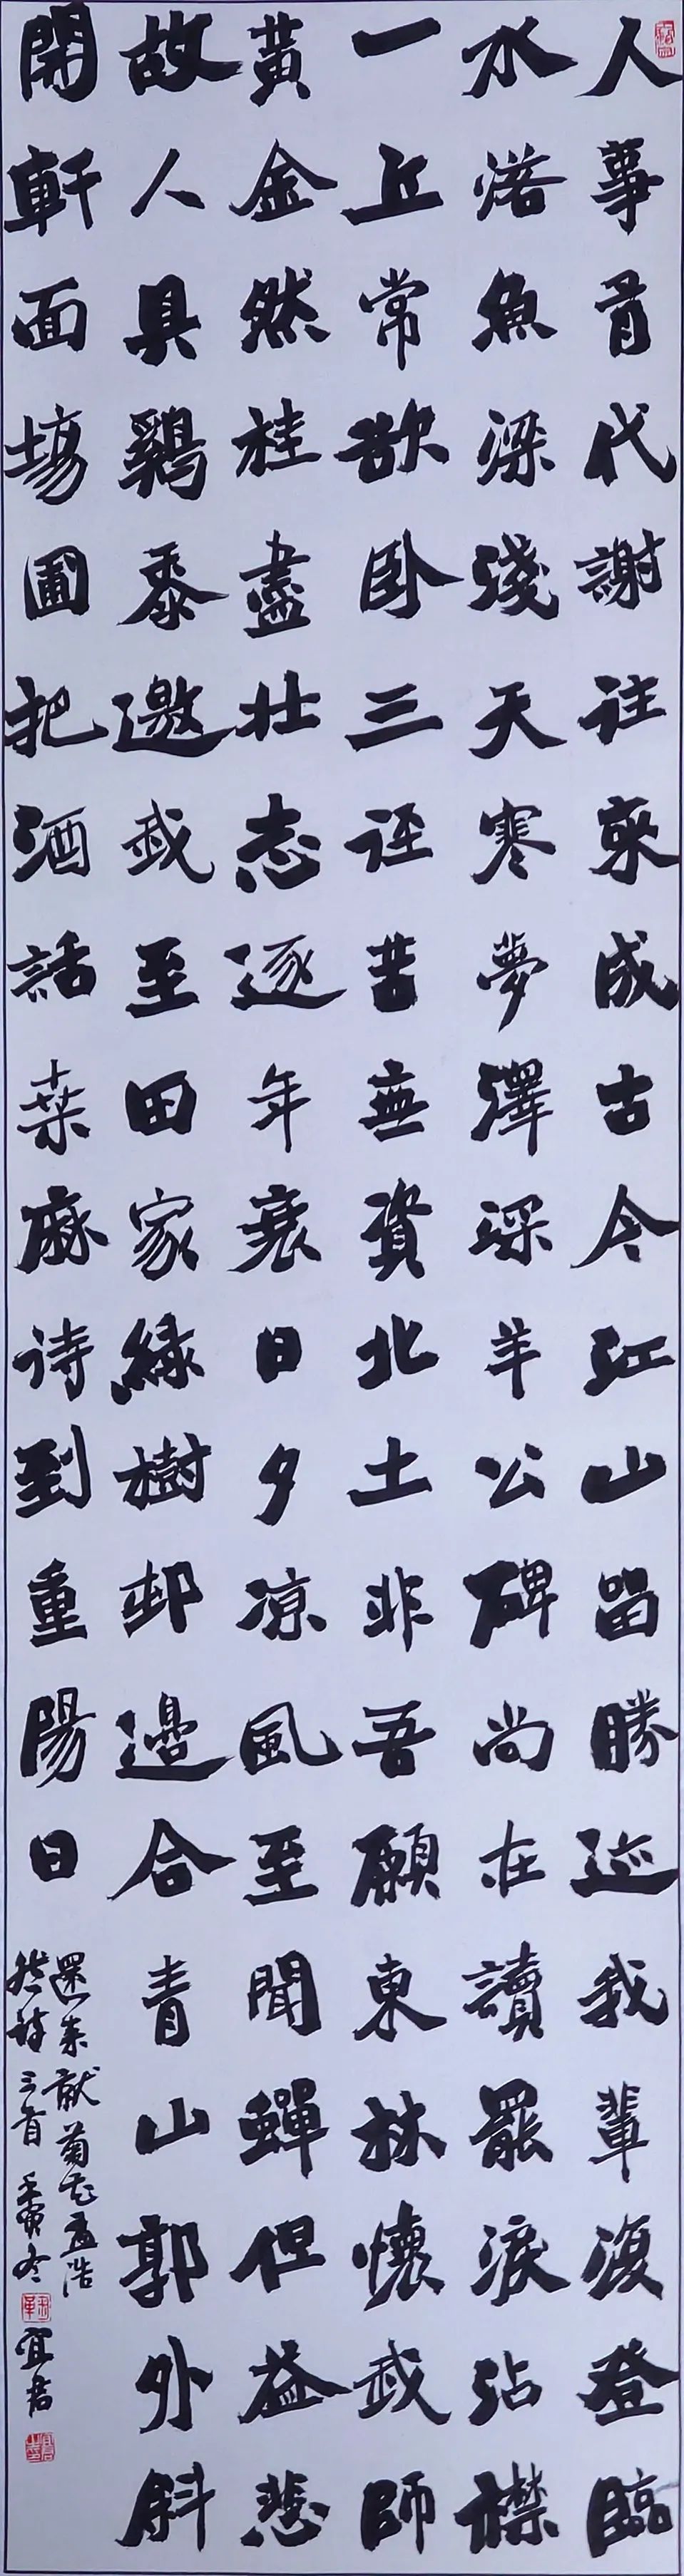 人事有代謝往來成古今江山留勝迹我輩復登臨
水落魚梁淺天寒夢澤深羊公碑尚在讀罷淚沾襟
一丘常欲卧三徑苦無資北土非吾願東林懷我師
黃金然桂盡壯志逐年衰日夕凉風至聞蟬但益悲
故人具鷄黍邀我至田家綠樹邨邊合青山郭外斜
開軒面場圃把酒話桑麻待到重陽日
還來就菊花孟浩
然詩三首壬寅冬宜君